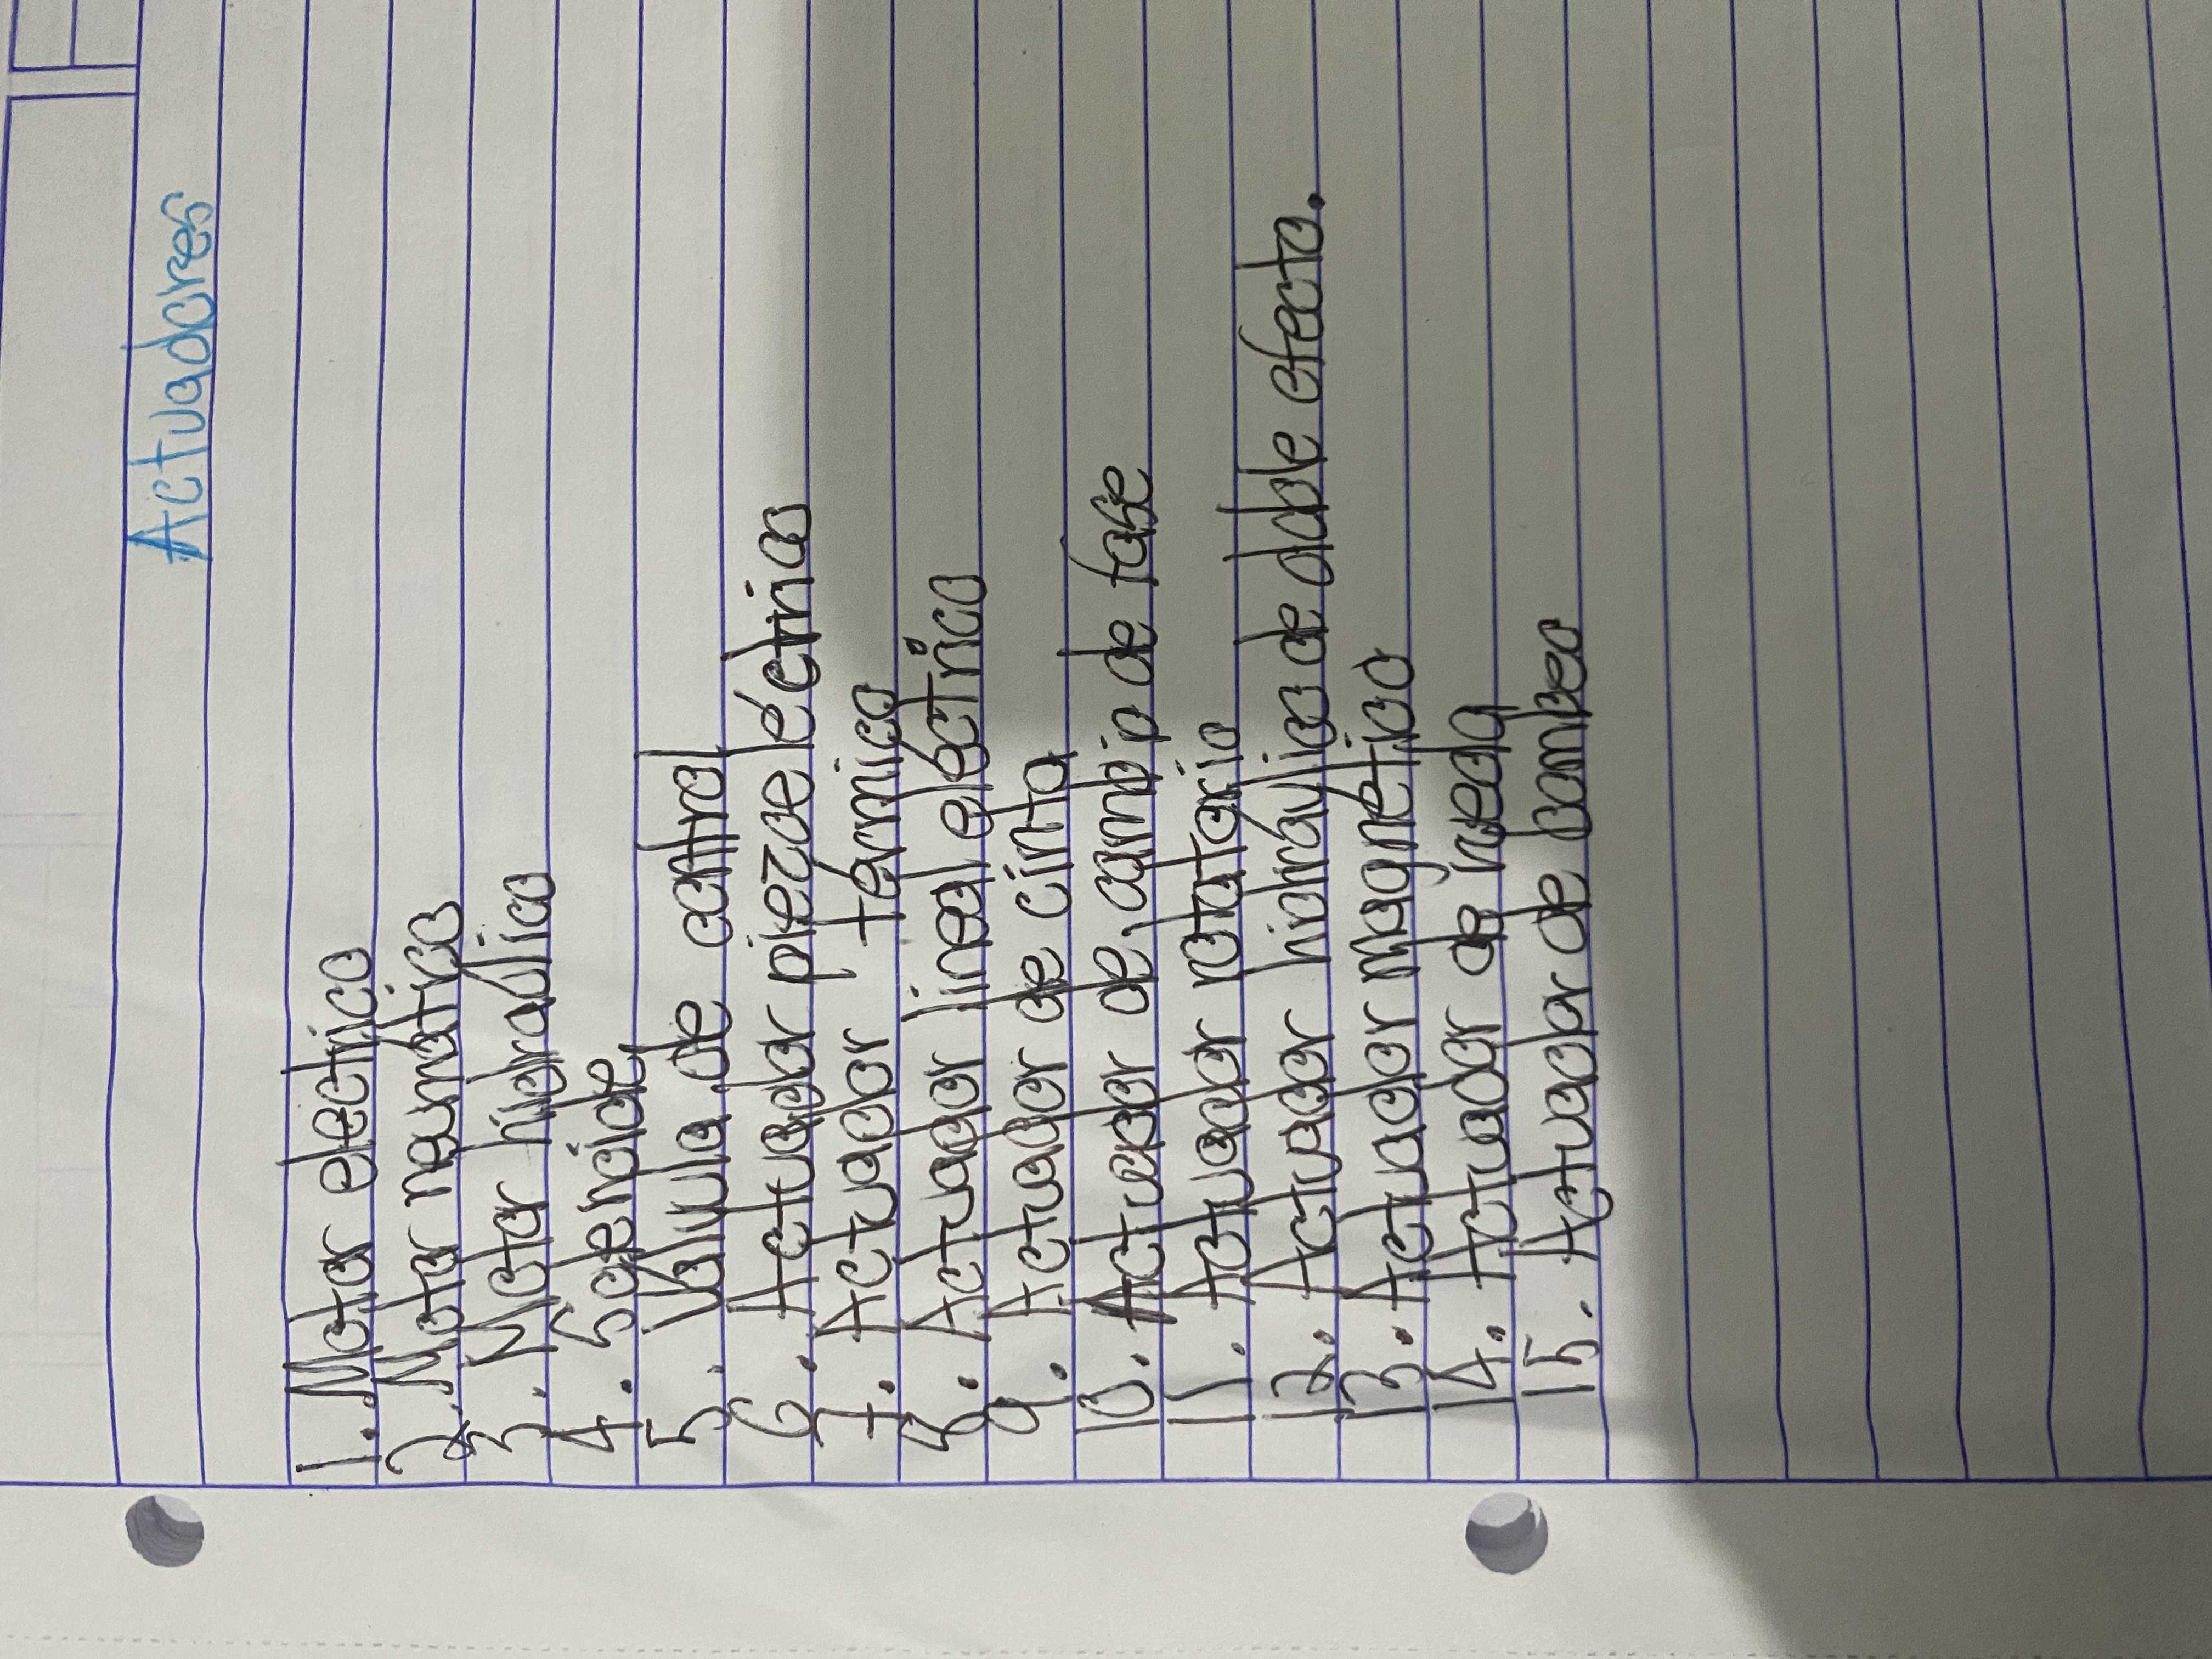 Actuadores
1. Motor electrico
2. Motor neumático
3. Motor hidraúlico
4. Solenoide
5. Válvula de control
6. Actuador piezoeléctrico
7. Actuador térmico
8. Actuador lineal eléctrico
9. Actuador de cinta
10. Actuador de cambio de fase
11. Actuador rotatorio
12. Actuador hidráulico de doble efecto.
13. Actuador magnético
14. Actuador de rueda
15. Actuador de bombeo